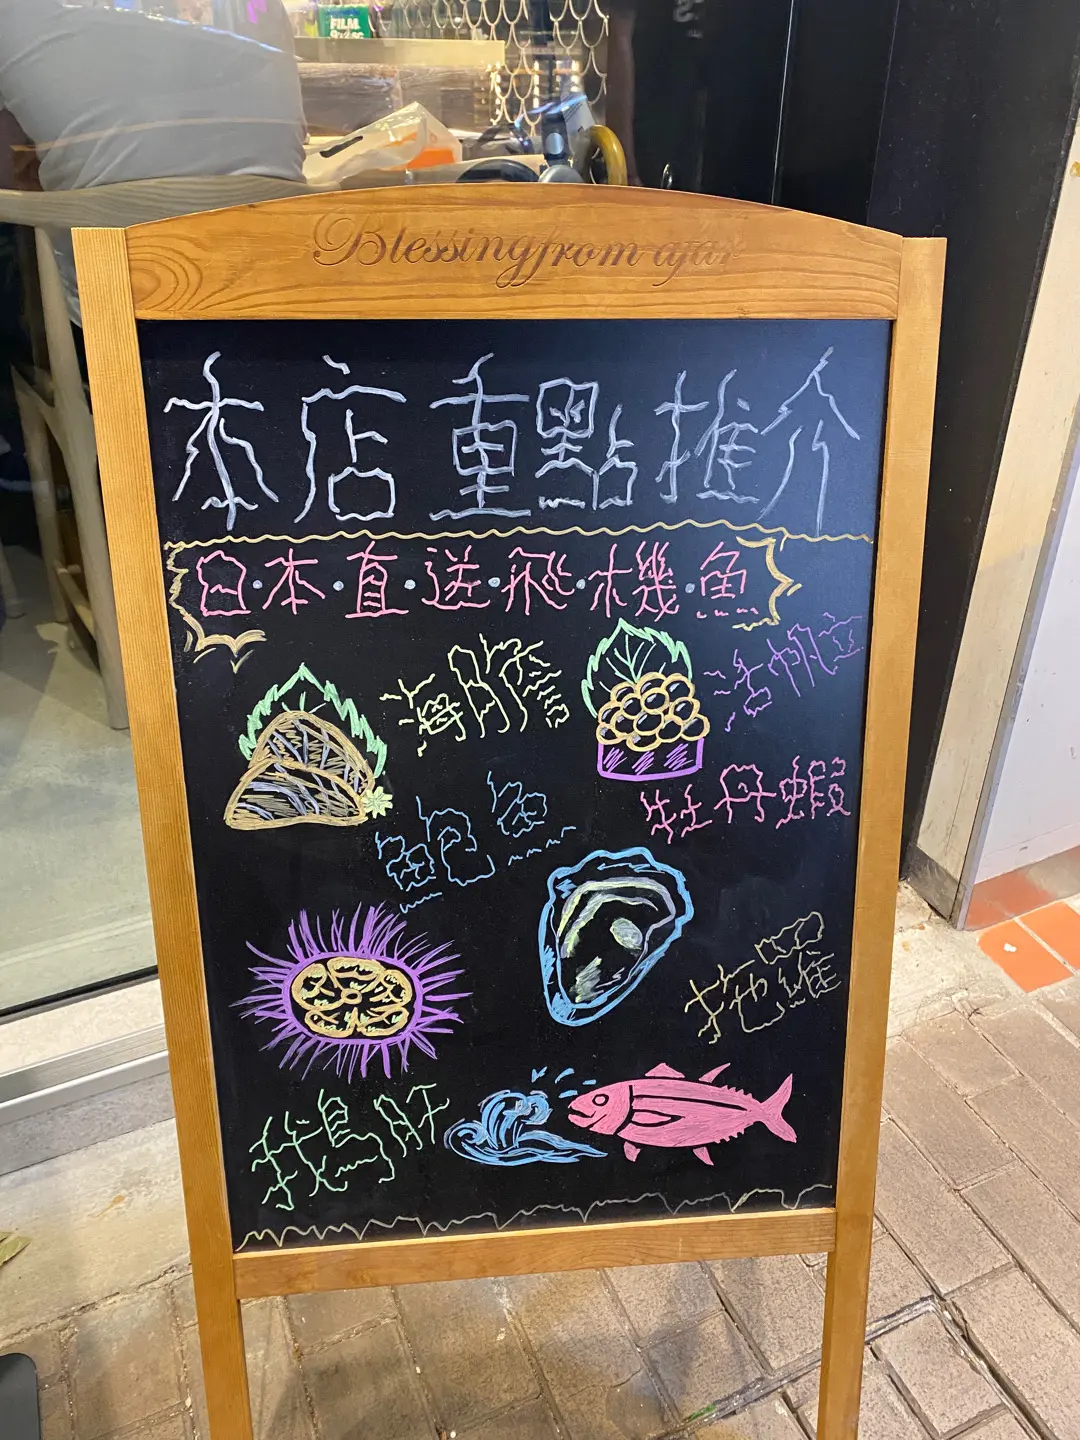 FILM
Blessing from ajar
本店重點推介
日·本·直·送·飛·機·魚
海膽
活帆立
牡丹蝦
鮑魚
拖羅
鵝肝